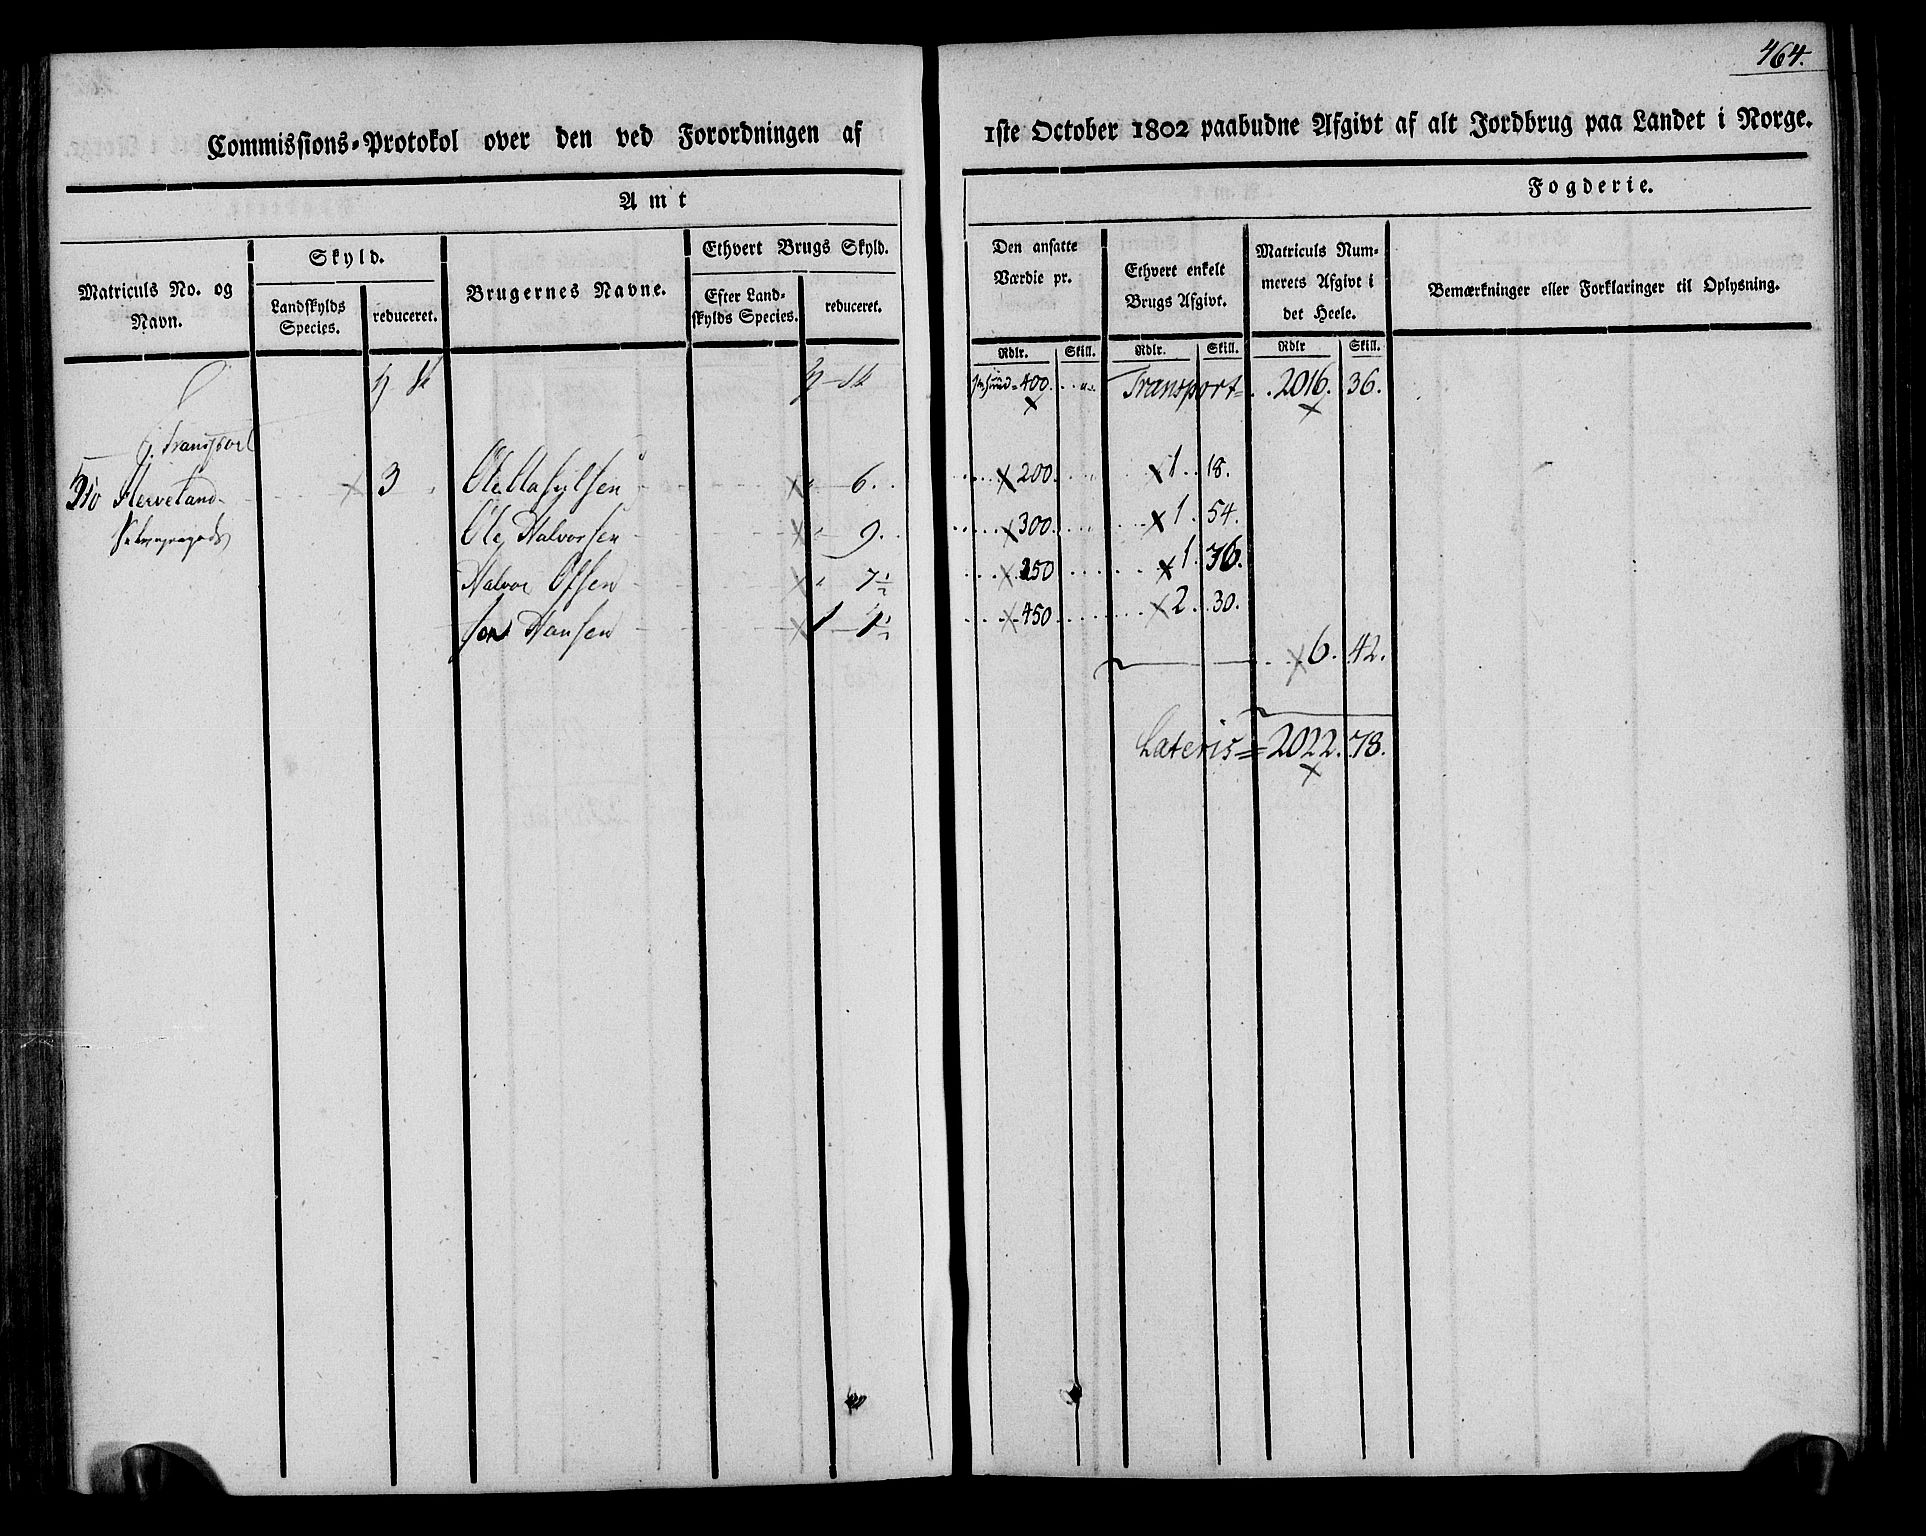 464.
Commissions-Protokol over den ved Forordningen af 1ste October 1802 paabudne Afgivt af alt Jordbrug paa Landet i Norge.
Amt Fogderie.
Matriculs No. og Navn.
Skyld.
Landskylds Species.
reduceret.
Brugernes Navne.
Ethvert Brugs Skyld.
Efter Landskylds Species.
reduceret.
Den ansatte Værdie pr.
Ethvert enkelt Brugs Afgivt.
Matriculs Nummerets Afgivt i det Heele.
Bemærkninger eller Forklaringer til Oplysning.
Rdlr. Skill. Rdlr. Skill. Rdlr Skill.
400. Transport 2016. 36.
Transport
3 Ole 6. 200. 1. 18.
Ole Halvorsen 9. 300. 1. 54.
Halvor Olsen 7½ 250 1. 36.
Hansen 1 450 2. 30.
6. 42.
Lateris = 2022. 78.